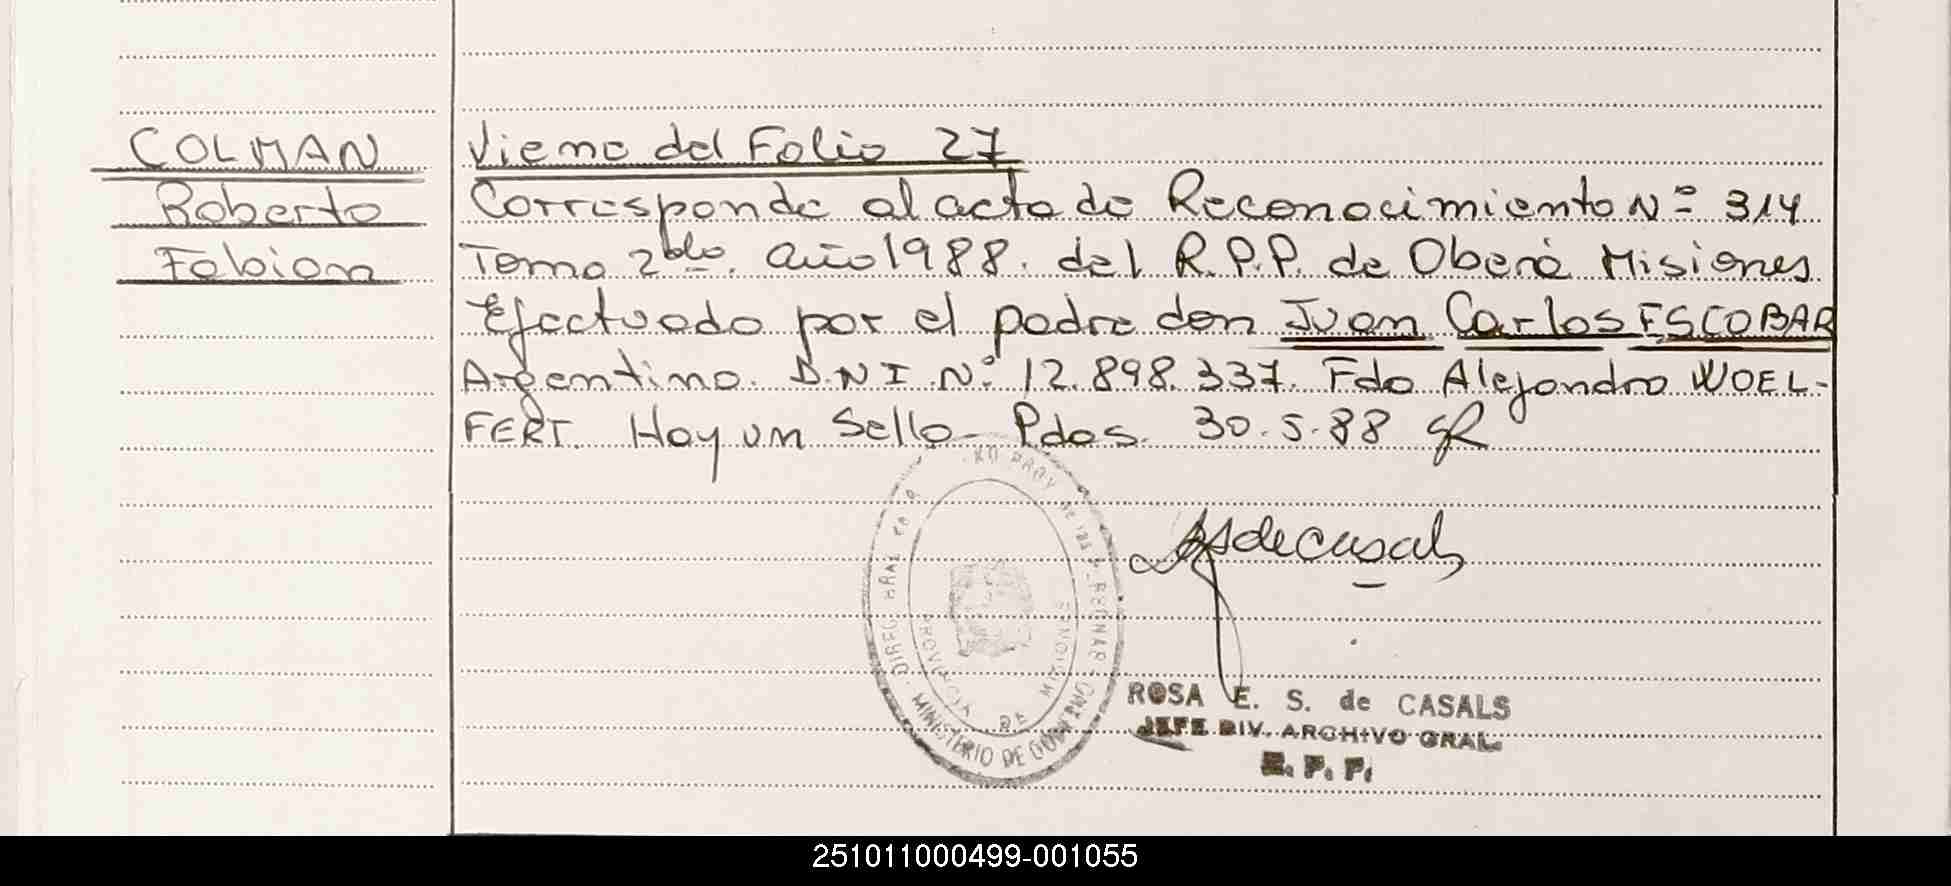 COLMAN
Roberto
Fabian
Viene del Folio 27
Corresponde al acta de Reconocimiento Nº 314
Tomo 2do. año 1988. del R.P.P. de Oberá Misiones
Efectuado por el padre don Juan Carlos ESCOBAR
Argentino. D.N.I. Nº 12.898.337. Fdo Alejandro WOEL-
FERT. Hay un Sello - Pdas. 30.5.88
MINISTERIO DE GOBIERNO
PROVINCIA DE MISIONES
ROSA E. S. de CASALS
JEFE DIV. ARCHIVO GRAL.
R. P. P.
251011000499-001055